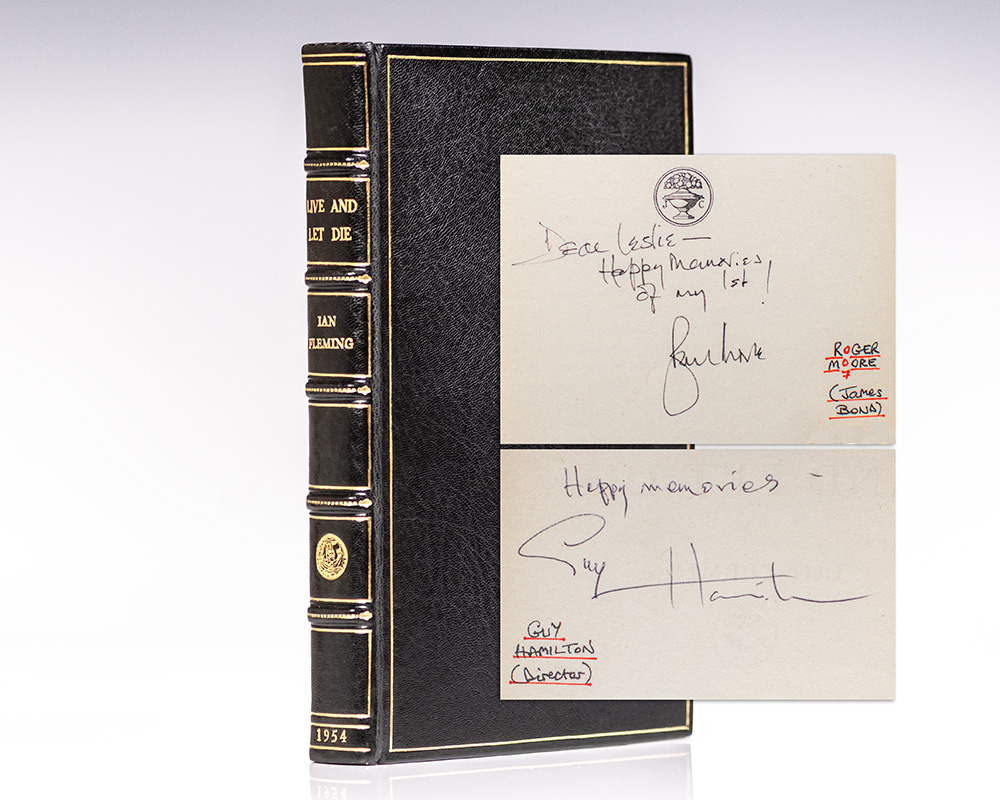 LIVE AND
LET DIE
IAN
FLEMING
1954
J C
Dear Leslie —
Happy Memories
of my 1st!
ROGER
MOORE
7
(James
BOND)
Happy memories -
Guy Hamilton
GUY
HAMILTON
(Director)